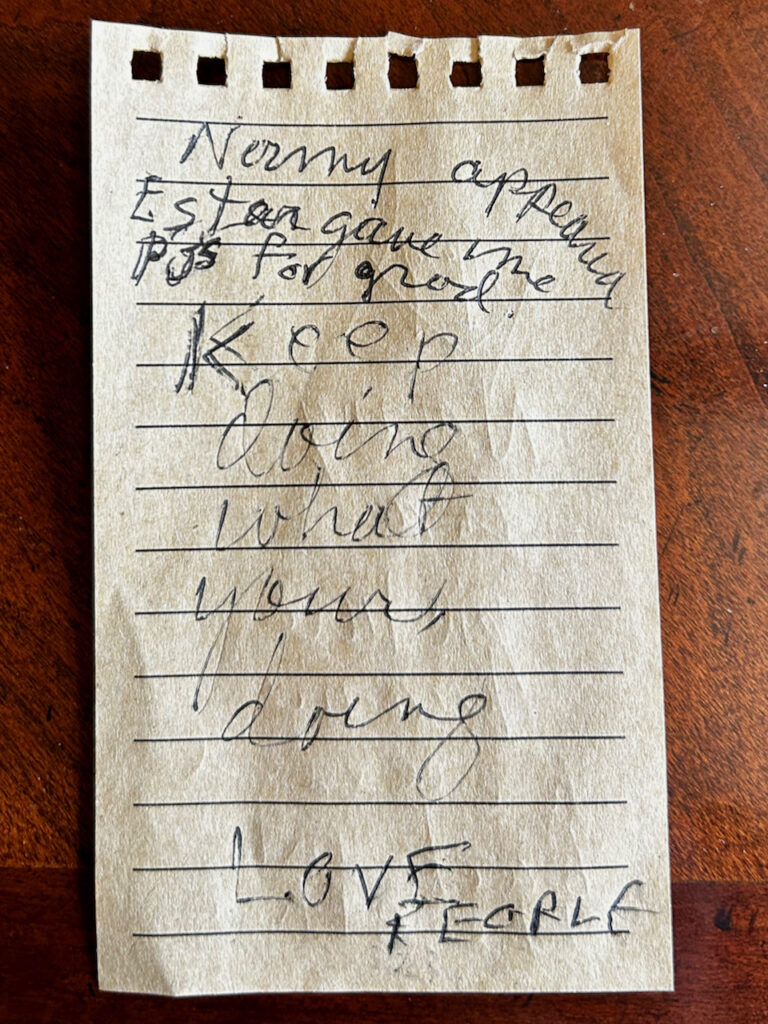 Nermy appeared
Estan gave me
PJs for grad.
Keep
doing
what
your,
doing
LOVE
PEOPLE